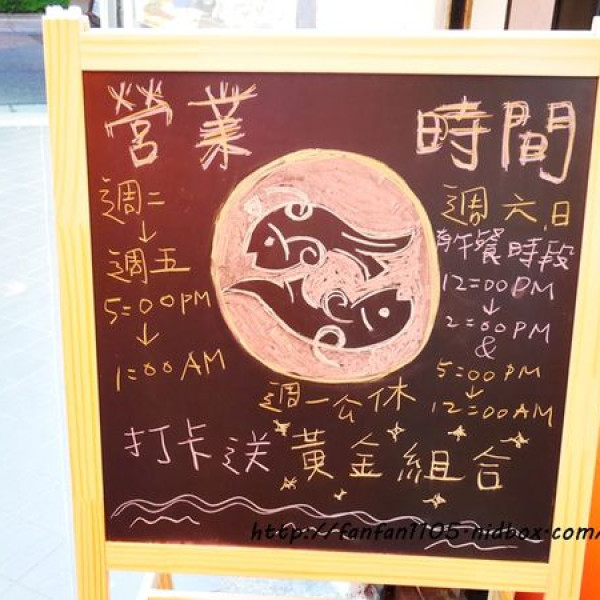 營業 時間
週二
↓
週五
5:00PM
↓
1:00AM
週六.日
有午餐時段
12:00PM
↓
2:00PM
&
5:00PM
↓
12:00AM
週一公休
打卡送黃金組合
http://fanfan1105.nidbox.com/